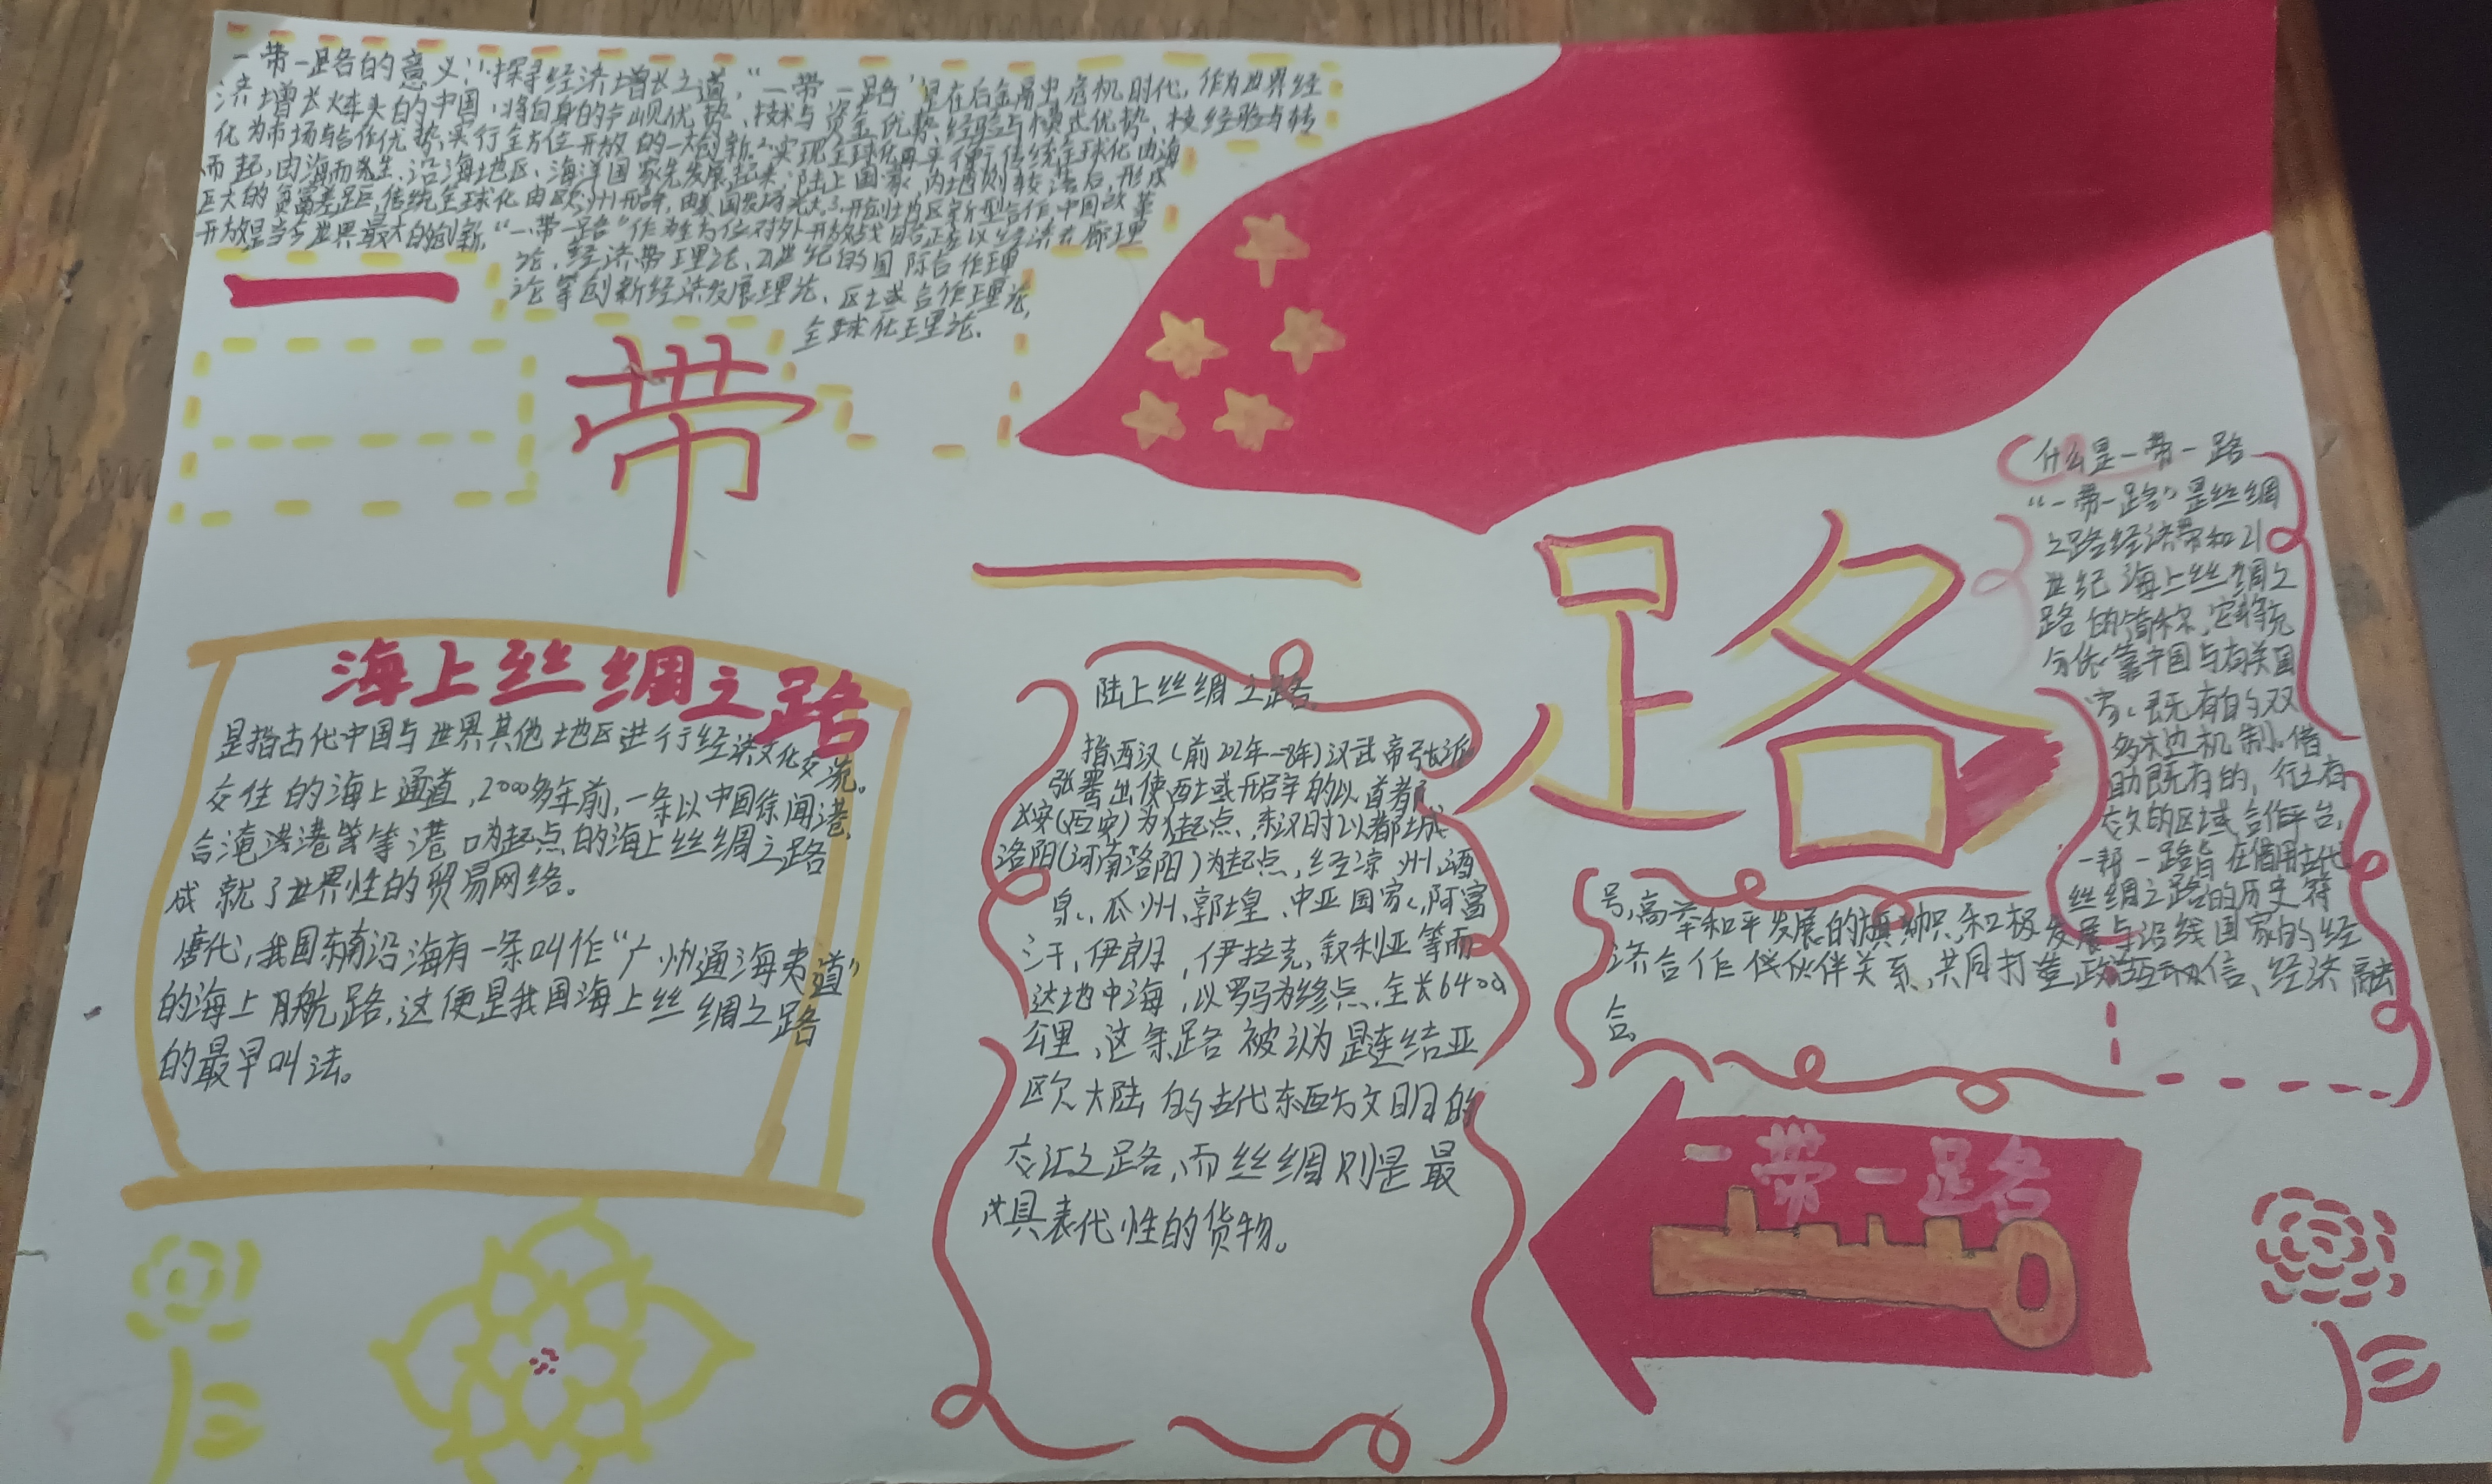 一带一路的意义:1.探寻经济增长之道,“一带一路”是在后金融危机时代,作为世界经
济增长火车头的中国,将自身的产业优势、技术与资金优势、经验与模式优势、
化为市场与合作优势,实行全方位开放的一大创新.2.实现全球化再平衡,传统全球化由海
而起,由海而发生,沿海地区、海洋国家先发展起来,陆上国家、内地则较落后,形成
巨大的贫富差距,传统全球化由欧洲开辟,由美国发扬光大.3.开创地区新型合作中国改革
开放是当今世界最大的创新,“一带一路”作为全方位对外开放战略正在以经济走廊理
论、经济带理论、21世纪的国际合作理
论等创新经济发展理论、区域合作理论,
全球化理论.
一带
一路
什么是一带一路
“一带一路”是丝绸
之路经济带和21
世纪海上丝绸之
路的简称,它将充
分依靠中国与有关国
家、既有的双
多边机制,借
助既有的,行之有
效的区域合作平台,
一带一路旨在借用古代
丝绸之路的历史符
号,高举和平发展的旗帜,积极发展与沿线国家的经
济合作伙伴关系,共同打造政治互信、经济融
合.
海上丝绸之路
是指古代中国与世界其他地区进行经济文化交流。
交往的海上通道,2000多年前,一条以中国徐闻港,
合港等港口为起点的海上丝绸之路
成就了世界性的贸易网络。
唐代,我国东南沿海有一条叫作“广州通海夷道”
的海上航路,这便是我国海上丝绸之路
的最早叫法。
陆上丝绸之路
指西汉(前202年—8年)汉武帝派
张骞出使西域开辟的以首都
长安(西安)为起点、东汉时以都城
洛阳(河南洛阳)为起点,经凉州、酒
泉、瓜州、郭煌、中亚国家、阿富
汗,伊朗,伊拉克,叙利亚等而
达地中海,以罗马为终点,全长6400
公里,这条路被认为是连结亚
欧大陆的古代东西方文明的
交汇之路,而丝绸则是最
具表代性的货物。
一带一路